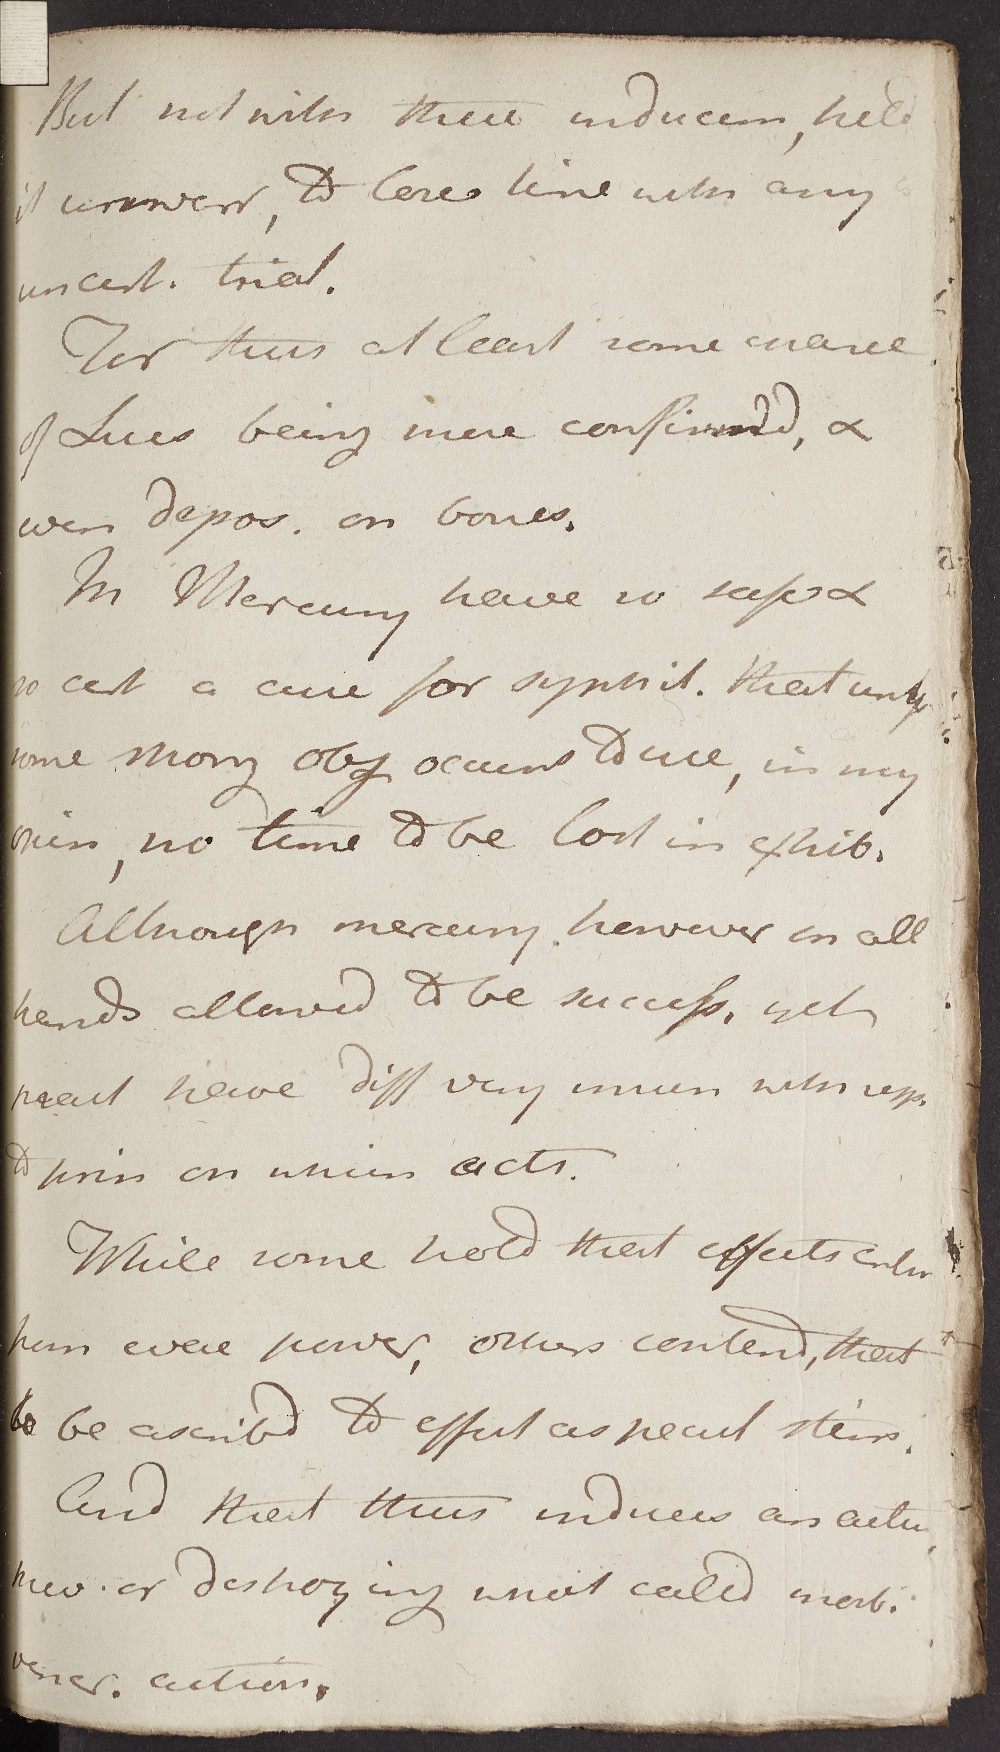 But not with these inducem, held
it unwarr, to lose time with any
uncert. trial.
For thus at least some chance
of Lues being more confirmd, &
even depos. on bones.
In Mercury have so safe &
so cert a cure for syphil. that unless
some strong obj occurs to use, in my
opin, no time to be lost in exhib.
Although mercury however on all
hands allowed to be success, yet
pract have diff very much with resp.
to prin on which acts.
While some hold that effects
from evac power, others contend, that
to be ascribd to effect as pecul stim.
And that thus induces an action
new or destroying what called morb.
vener. action.